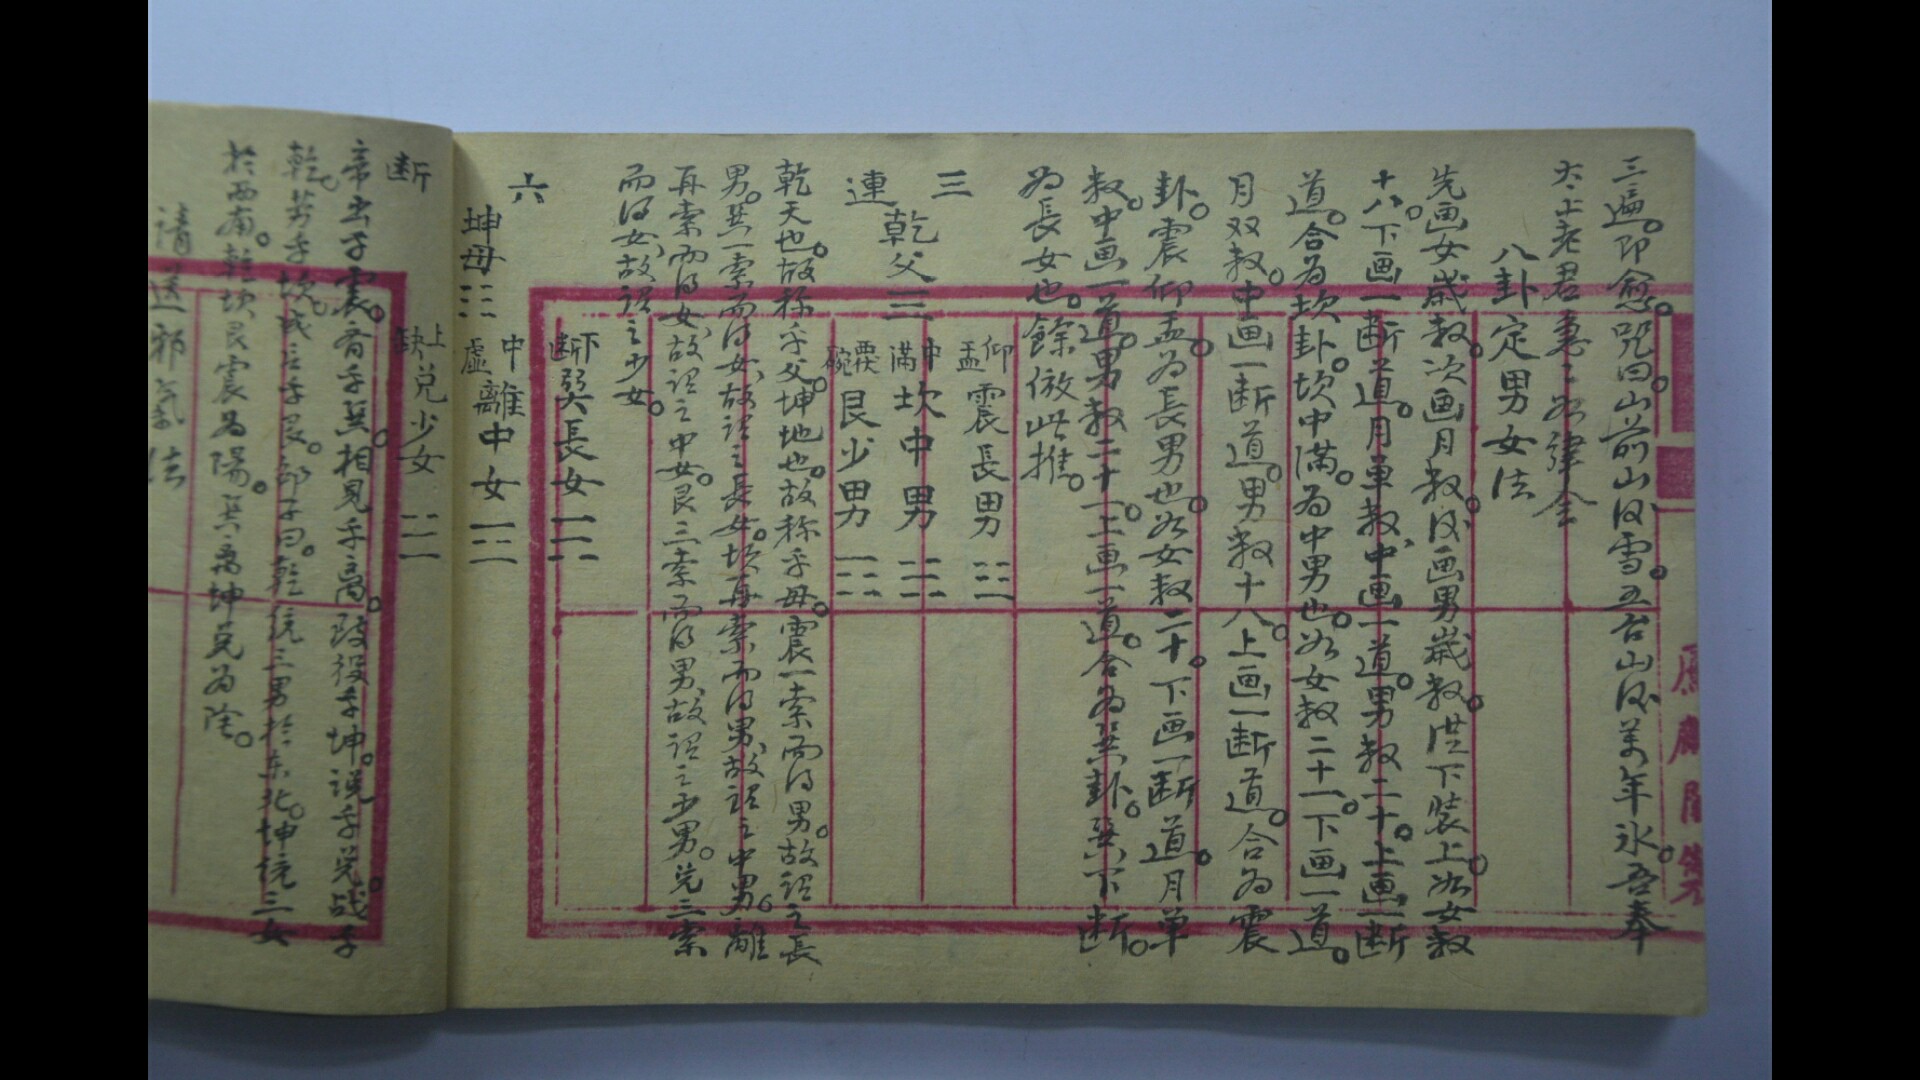 三遍。即愈。咒曰。山前山後雪。五台山後萬年冰。吾奉
太上老君急急如律令
八卦定男女法
先画女歲数。次画月数。後画男歲数。従下裝上。如女数
十八。下画一断道。月單数、中画一道。男数二十。上画一断
道。合為坎卦。坎中滿。為中男也。如女数二十一。下画一道。
月双数。中画一断道。男数十八。上画一断道。合為震
卦。震仰盂。為長男也。如女数二十。下画一断道。月单
数。中画一道。男数二十一。上画一道。合為巽卦。巽下断。
為長女也。餘倣此推。
三
連
乾父☰
仰盂 震長男 ☳
中滿 坎中男 ☵
覆碗 艮少男 ☶
乾天也。故称乎父。坤地也。故称乎母。震一索而得男。故謂之長
男。巽一索而得女、故謂之長女。坎再索而得男、故謂之中男。離
再索而得女、故謂之中女。艮三索而得男、故謂之少男。兑三索
而得女、故謂之少女。
六
断
坤母☷
下断 巽長女 ☴
中虛 離中女 ☲
上缺 兑少女 ☱
帝出乎震。齊乎巽。相見乎离。致役乎坤。説乎兑。战乎
乾。劳乎坎。成言乎艮。邵子曰。乾统三男於东北。坤统三女
於西南。乾坎艮震為陽。巽离坤兑為陰。
請送邪氣法